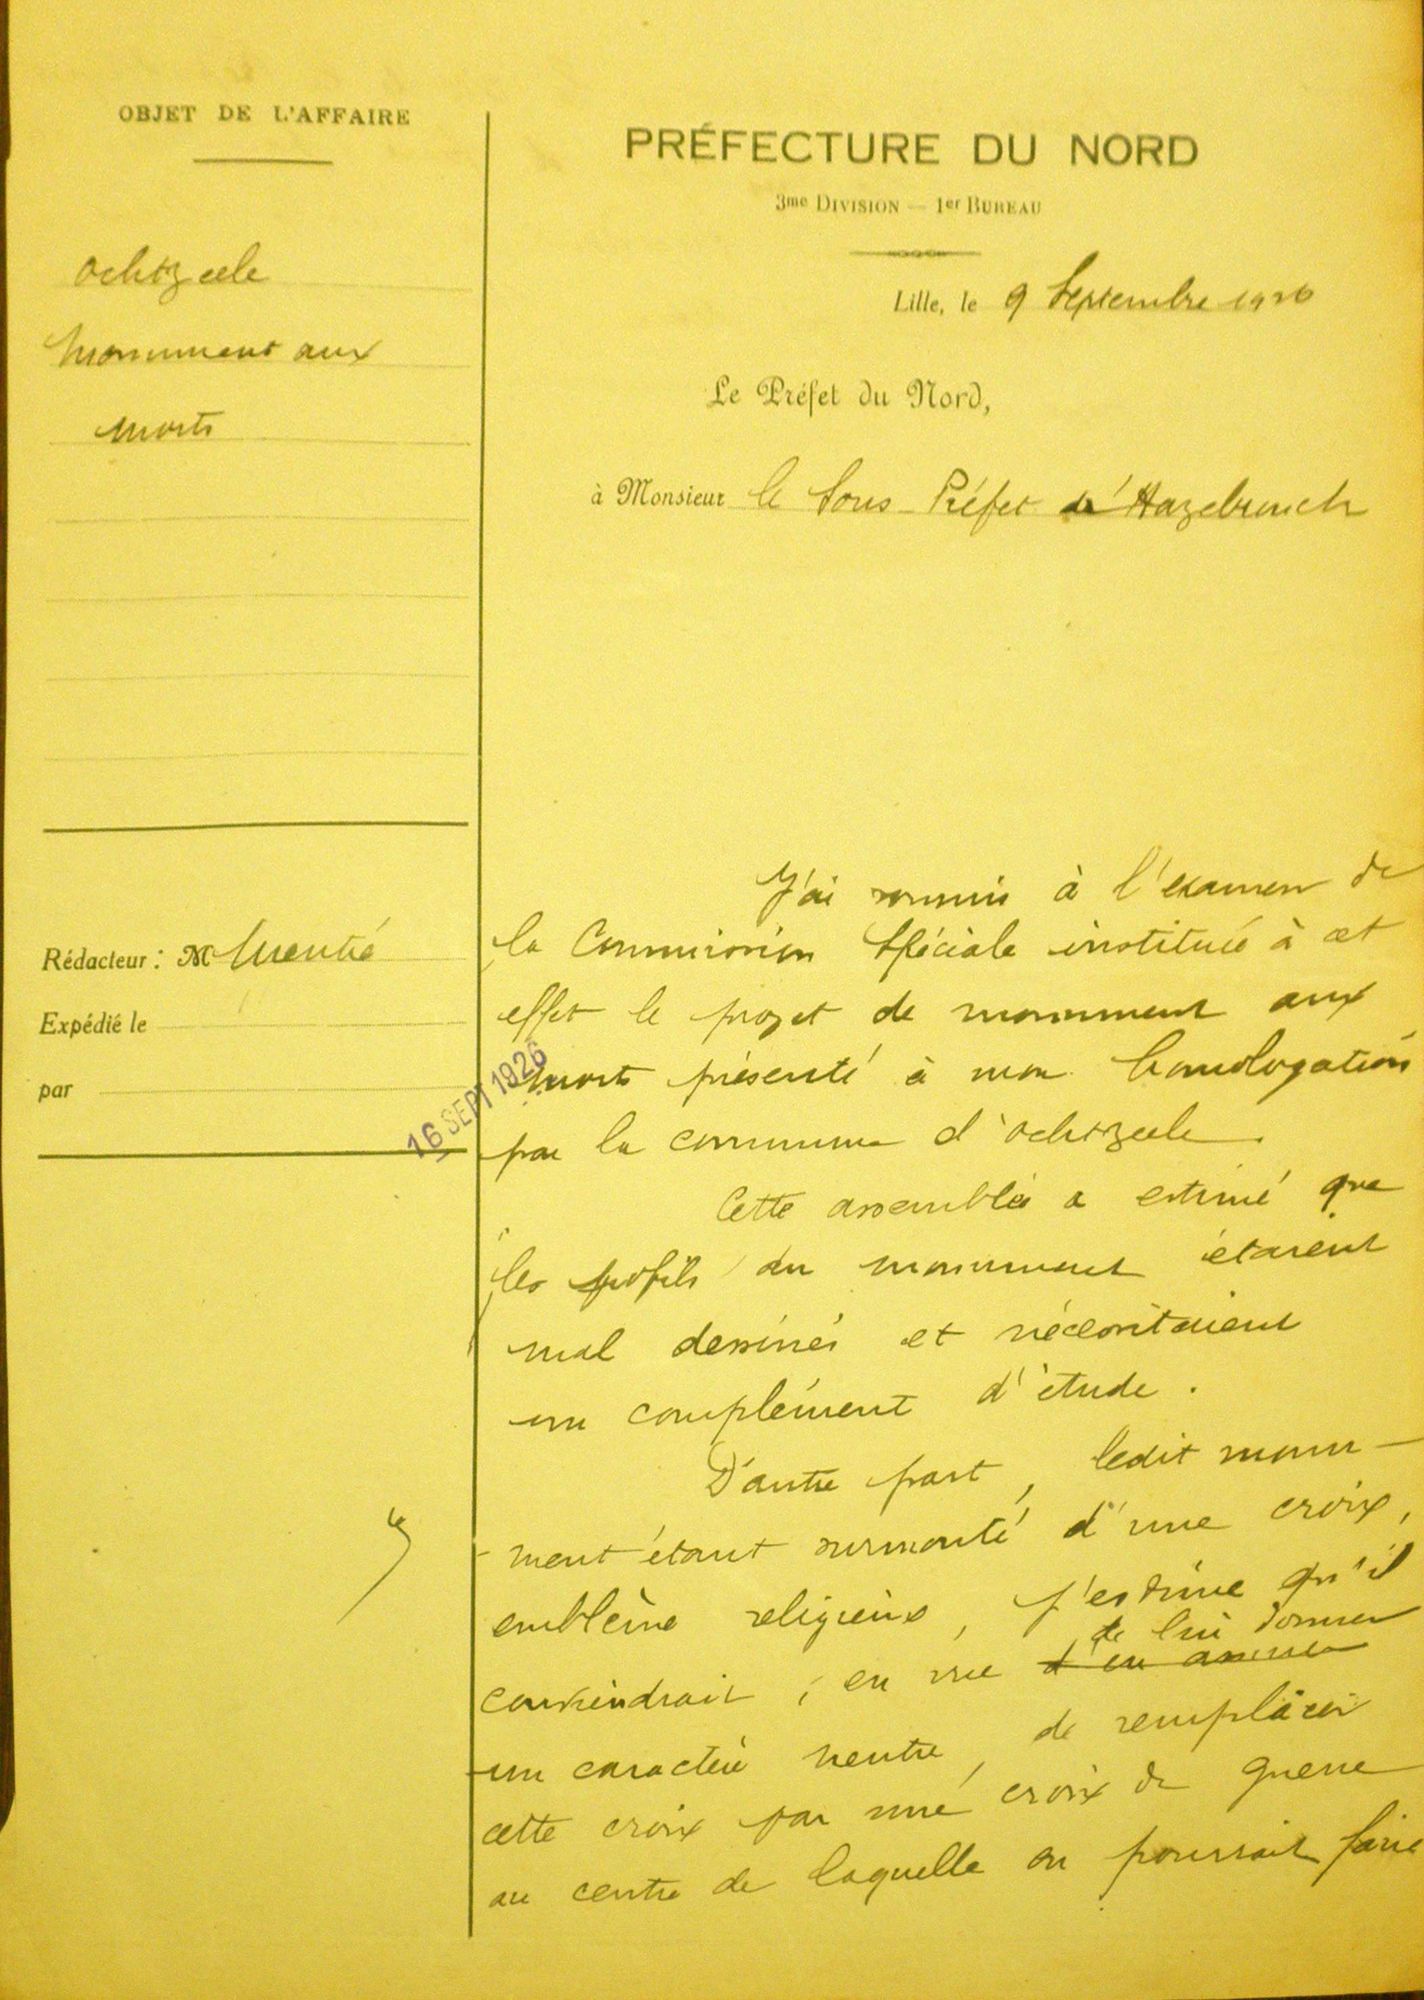 OBJET DE L'AFFAIRE
Ochtzeele
Monument aux
morts
Rédacteur : M
Expédié le
par
16 SEPT 1926
PRÉFECTURE DU NORD
3me DIVISION — 1er BUREAU
Lille, le 9 Septembre 1926
Le Préfet du Nord,
à Monsieur le Sous-Préfet d'Hazebrouck
J'ai soumis à l'examen de
la Commission Spéciale instituée à cet
effet le projet de monument aux
morts présenté à mon homologation
par la commune d'Ochtzeele.
Cette assemblée a estimé que
les profils du monument étaient
mal dessinés et nécessitaient
un complément d'étude.
D'autre part, ledit monu-
ment étant surmonté d'une croix,
emblème religieux, j'estime qu'il
de lui donner
conviendrait, en vue d'en assurer
un caractère neutre, de remplacer
cette croix par une croix de guerre
au centre de laquelle on pourrait faire